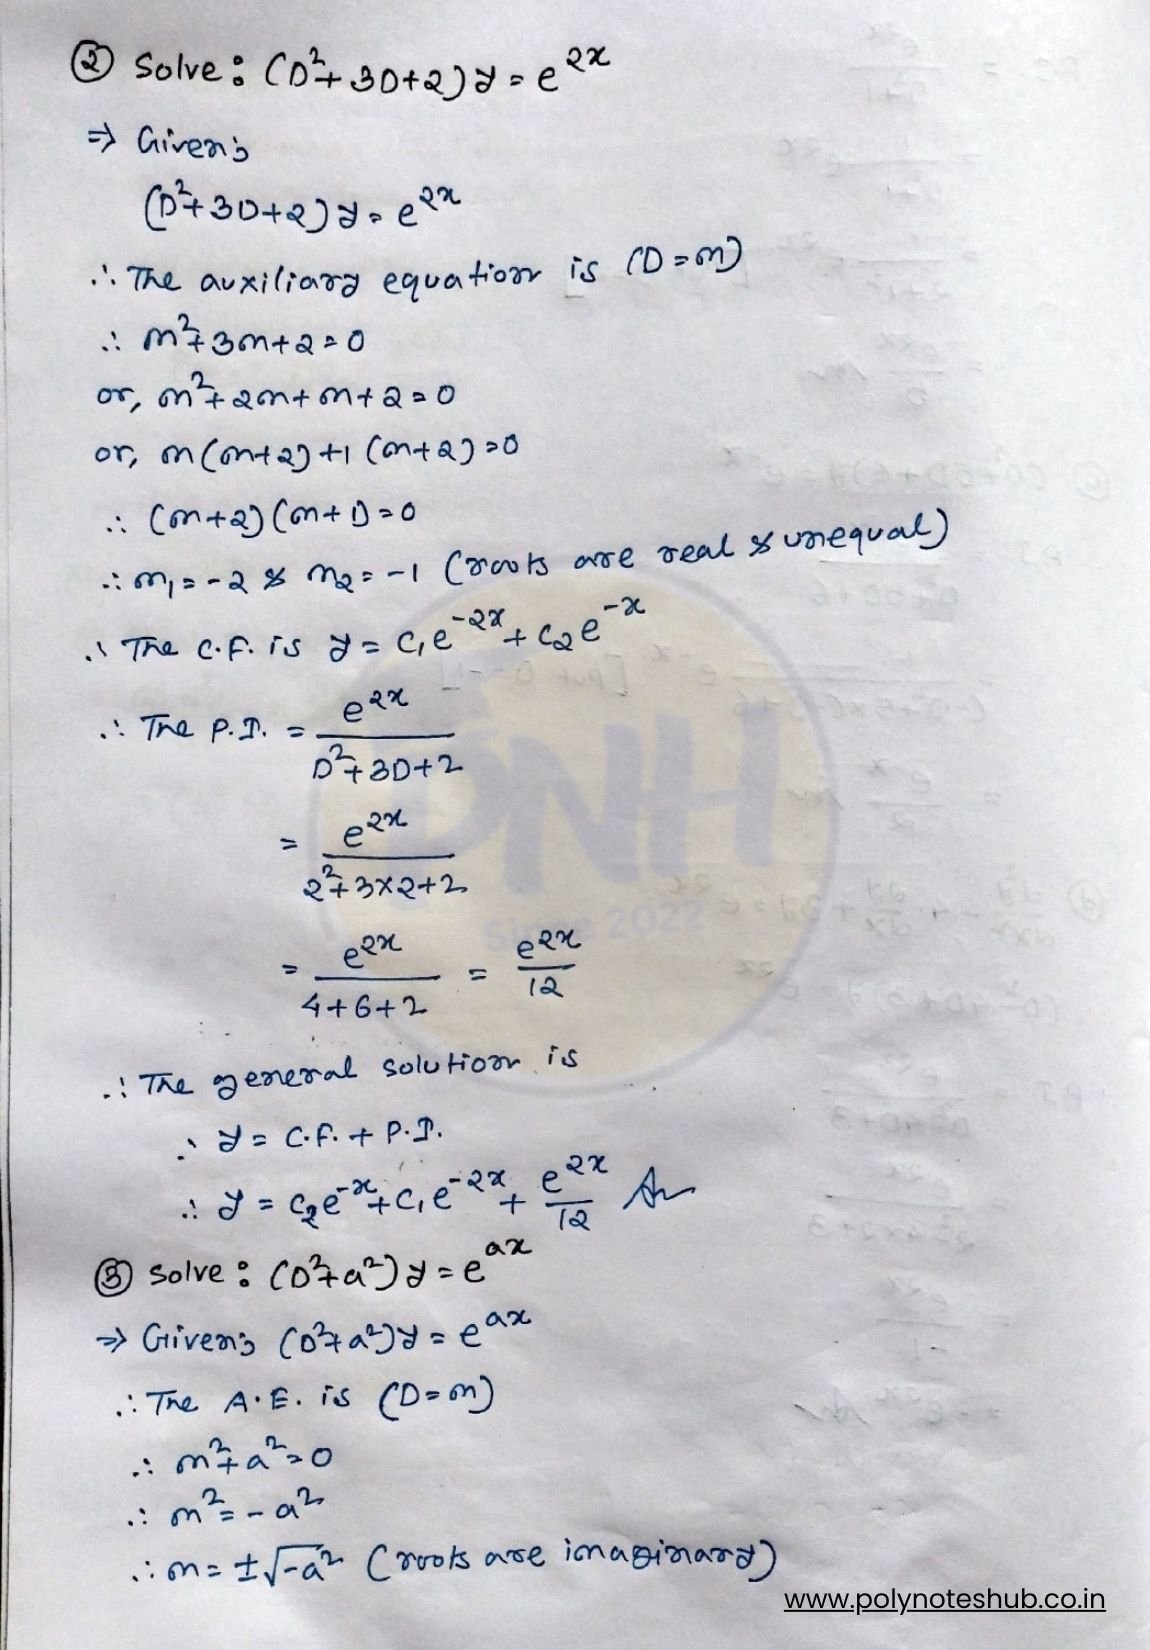 ② Solve : (D²+3D+2)y = e^{2x}
⇒ Given :
(D²+3D+2)y = e^{2x}
∴ The auxiliary equation is (D=m)
∴ m²+3m+2=0
or, m²+2m+m+2=0
or, m(m+2)+1(m+2)=0
∴ (m+2)(m+1)=0
∴ m₁=-2 & m₂=-1 (roots are real & unequal)
∴ The C.F. is y = c₁e^{-2x}+c₂e^{-x}
∴ The P.I. = e^{2x}/(D²+3D+2)
= e^{2x}/(2²+3×2+2)
= e^{2x}/(4+6+2) = e^{2x}/12
∴ The general solution is
∴ y = C.F. + P.I.
∴ y = c₂e^{-x}+c₁e^{-2x}+e^{2x}/12 An
③ Solve : (D²+a²)y = e^{ax}
⇒ Given : (D²+a²)y = e^{ax}
∴ The A.E. is (D=m)
∴ m²+a²=0
∴ m²=-a²
∴ m=±√-a² (roots are imaginary)
PNH
Since 2022
www.polynoteshub.co.in